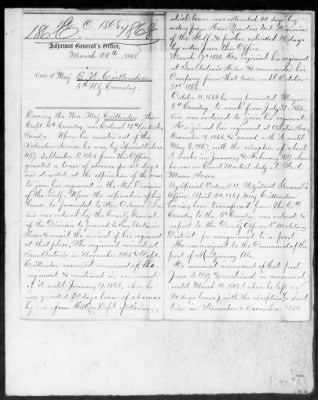 186 C 1868
Adjutant General's Office,
March 20th, 1868
Case of Maj. E. W. Crittenden
5th U.S. Cavalry
During the War Maj. Crittenden, then
Capt. 4th Cavalry, was Colonel 12th Kentucky
Cavalry. When he was mustered out of the
Volunteer service he was, by
September 8, 1865 from this Office,
granted a leave of absence for days
and directed at the expiration of the leave
to join his regiment in the Mil. Division
of the Gulf. When the
leave he proceeded to New Orleans, La.
and was ordered by the Comdg General
of the Division to proceed to San Antonio
Texas & await the arrival of his regiment
at that place. The regiment arrived at
San Antonio in November 1865 & Capt.
Crittenden assumed command of the
regiment & continued in command
of it until January 1866, when he
was granted 20 days leave of absence
by order from Hd. Qrs. Dept. of Texas,
which leave was extended 20 days by
orders from Head Quarters Mil. Division
of the Gulf & further extended 30 days
by orders from this Office.
March 17th 1866 he joined his regiment
at San Antonio, Texas & commanded his
Company from that time until October
31st 1866.
October 11, 1866 was promoted Major
5th Cavalry, to rank from July 28, 1866,
and was ordered to join his regiment.
He joined his regiment at
December 9, 1866, & served with it until
May 8, 1867, with the exception of about
2 weeks in January & February 1867, when
he was on Court Martial duty at Fort
By Special Orders 211, Adjutant General's
Office, April 24, 1867, Maj. Crittenden
was transferred from the
Cavalry to the 5th Cavalry & was ordered to
report to the Comdg Officer 3d Military
District for assignment to a post.
He was assigned to the Command of the
post of Montgomery, Ala.
He assumed command of that post
June 5, 1867, & continued in command
until March 10, 1868, (when he left on
30 days leave) with the exception of a short
time in November & December 1867